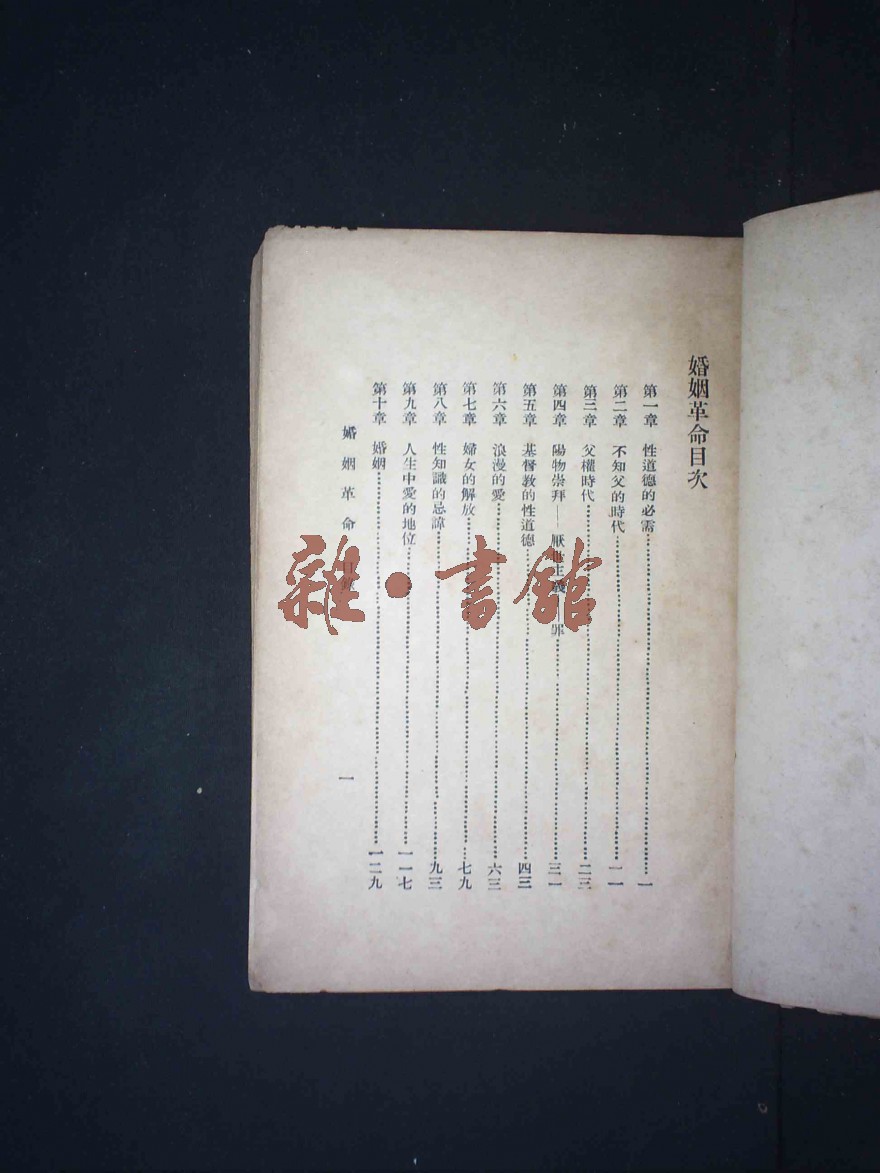 婚姻革命目次
第一章 性道德的必需……………………一
第二章 不知父的時代……………………一一
第三章 父權時代……………………二三
第四章 陽物崇拜——厭世主義——罪……………………三一
第五章 基督教的性道德……………………四三
第六章 浪漫的愛……………………六三
第七章 婦女的解放……………………七九
第八章 性知識的忌諱……………………九三
第九章 人生中愛的地位……………………一一七
第十章 婚姻……………………一二九
婚姻革命 目
一
雜·書館